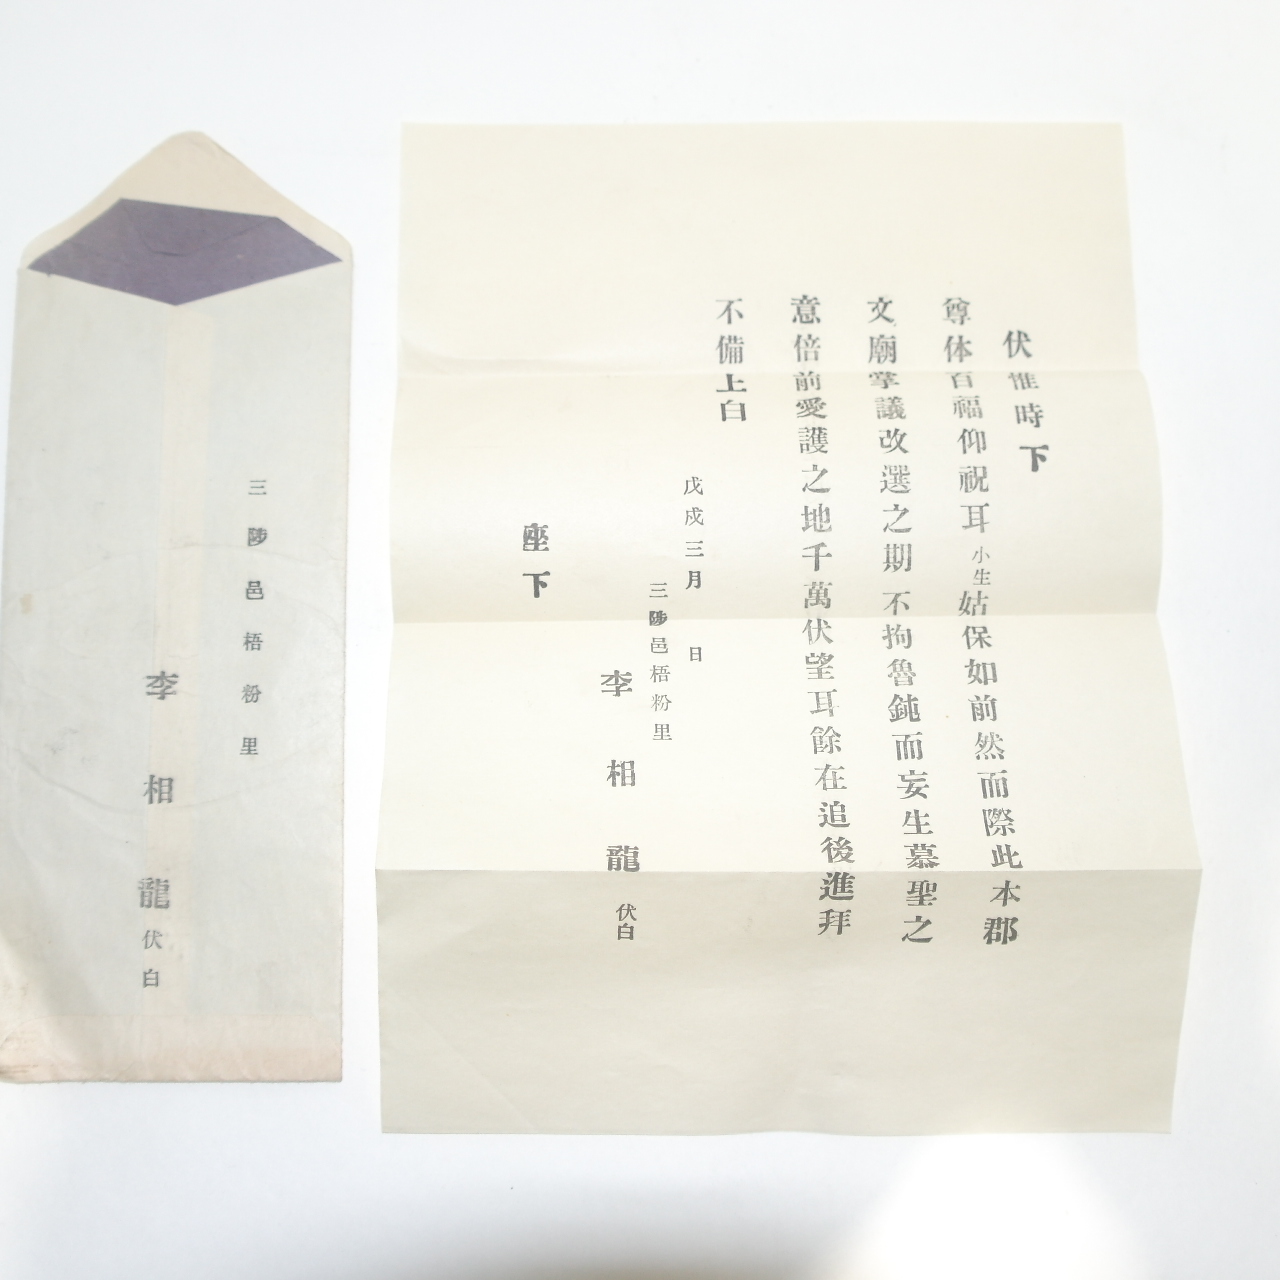 伏惟時下
尊体百福仰祝耳小生姑保如前然而際此本郡
文廟掌議改選之期不拘魯鈍而妄生慕聖之
意倍前愛護之地千萬伏望耳餘在追後進拜
不備上白
戊戍三月 日
三陟邑梧粉里
李相龍伏白
座下
三陟邑梧粉里
李相龍伏白